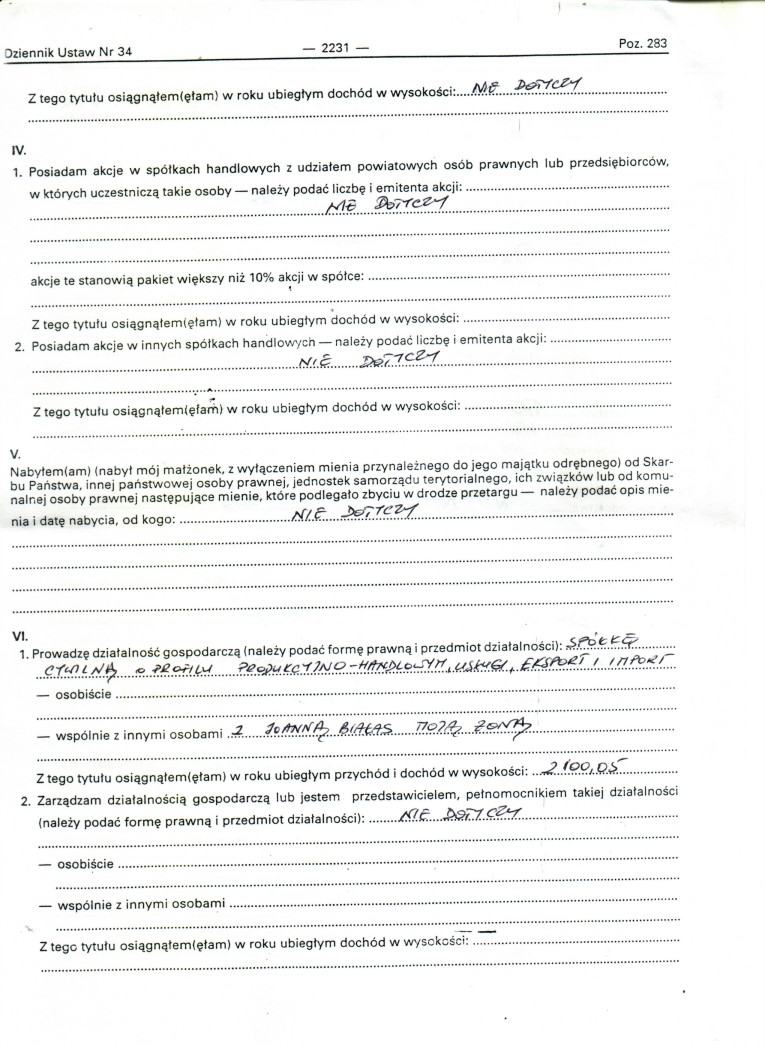 Dziennik Ustaw Nr 34 — 2231 — Poz. 283
Z tego tytułu osiągnąłem(ęłam) w roku ubiegłym dochód w wysokości: NIE DOTYCZY
IV.
1. Posiadam akcje w spółkach handlowych z udziałem powiatowych osób prawnych lub przedsiębiorców,
w których uczestniczą takie osoby — należy podać liczbę i emitenta akcji:
NIE DOTYCZY
akcje te stanowią pakiet większy niż 10% akcji w spółce:
Z tego tytułu osiągnąłem(ęłam) w roku ubiegłym dochód w wysokości:
2. Posiadam akcje w innych spółkach handlowych — należy podać liczbę i emitenta akcji:
NIE DOTYCZY
Z tego tytułu osiągnąłem(ęłam) w roku ubiegłym dochód w wysokości:
V.
Nabyłem(am) (nabył mój małżonek, z wyłączeniem mienia przynależnego do jego majątku odrębnego) od Skar-
bu Państwa, innej państwowej osoby prawnej, jednostek samorządu terytorialnego, ich związków lub od komu-
nalnej osoby prawnej następujące mienie, które podlegało zbyciu w drodze przetargu — należy podać opis mie-
nia i datę nabycia, od kogo: NIE DOTYCZY
VI.
1. Prowadzę działalność gospodarczą (należy podać formę prawną i przedmiot działalności): SPÓŁKĘ
CYWILNĄ o PROFILU PRODUKCYJNO-HANDLOWYM, USŁUGI, EKSPORT i IMPORT
— osobiście
— wspólnie z innymi osobami Z JOANNĄ BIAŁAS MOJĄ ŻONĄ
Z tego tytułu osiągnąłem(ęłam) w roku ubiegłym przychód i dochód w wysokości: 2100,05
2. Zarządzam działalnością gospodarczą lub jestem przedstawicielem, pełnomocnikiem takiej działalności
(należy podać formę prawną i przedmiot działalności): NIE DOTYCZY
— osobiście
— wspólnie z innymi osobami
Z tego tytułu osiągnąłem(ęłam) w roku ubiegłym dochód w wysokości: —